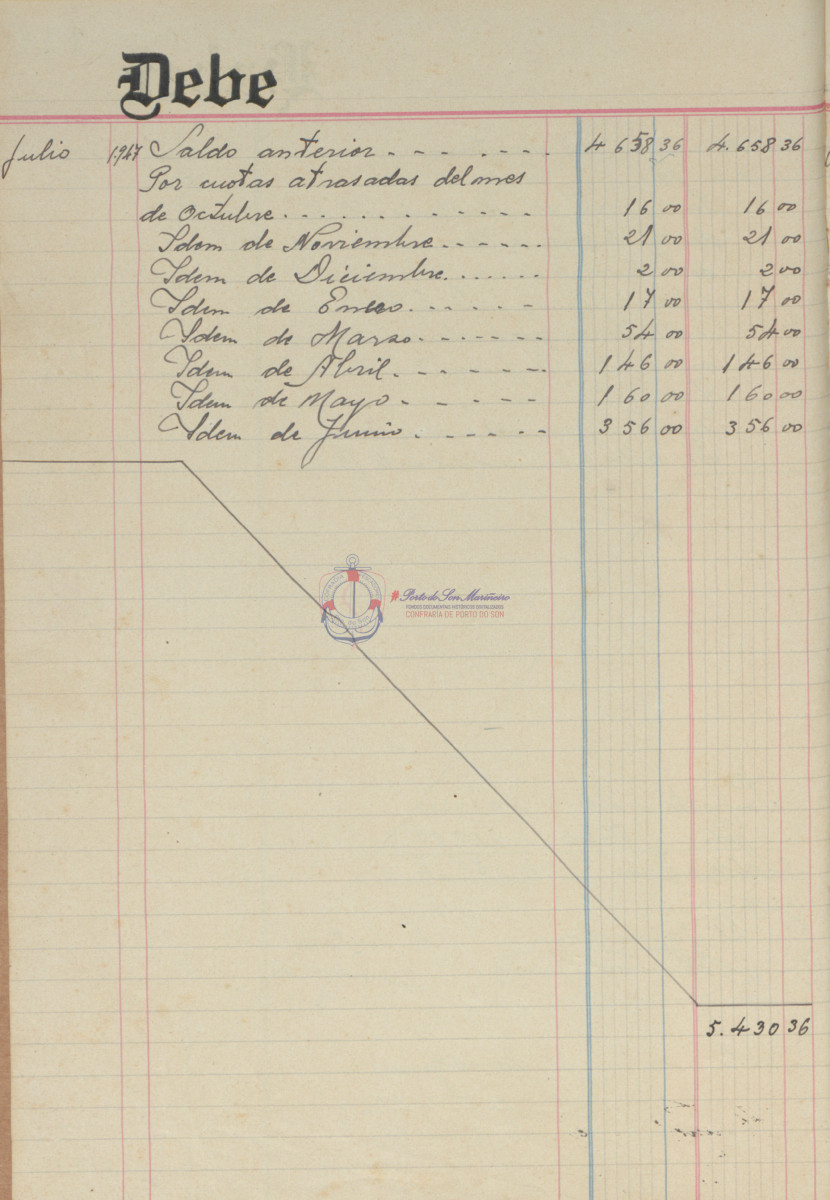 Debe
Julio 1.947 Saldo anterior - - - - - - - 4 658 36 4.658 36
Por cuotas atrasadas del mes
de Octubre . . . . . . . . . . . . 16 00 16 00
Idem de Noviembre - - - - - - 21 00 21 00
Idem de Diciembre . . . . . . 2 00 2 00
Idem de Enero . - - - - - 17 00 17 00
Idem de Marzo . - - - - - - 54 00 54 00
Idem de Abril . - - - - - - 146 00 146 00
Idem de Mayo - - - - - - 160 00 160 00
Idem de Junio . - - - - - - 356 00 356 00
#Porto do Son Mariñeiro
FONDOS DOCUMENTAIS HISTÓRICOS DIXITALIZADOS
CONFRARÍA DE PORTO DO SON
5.430 36